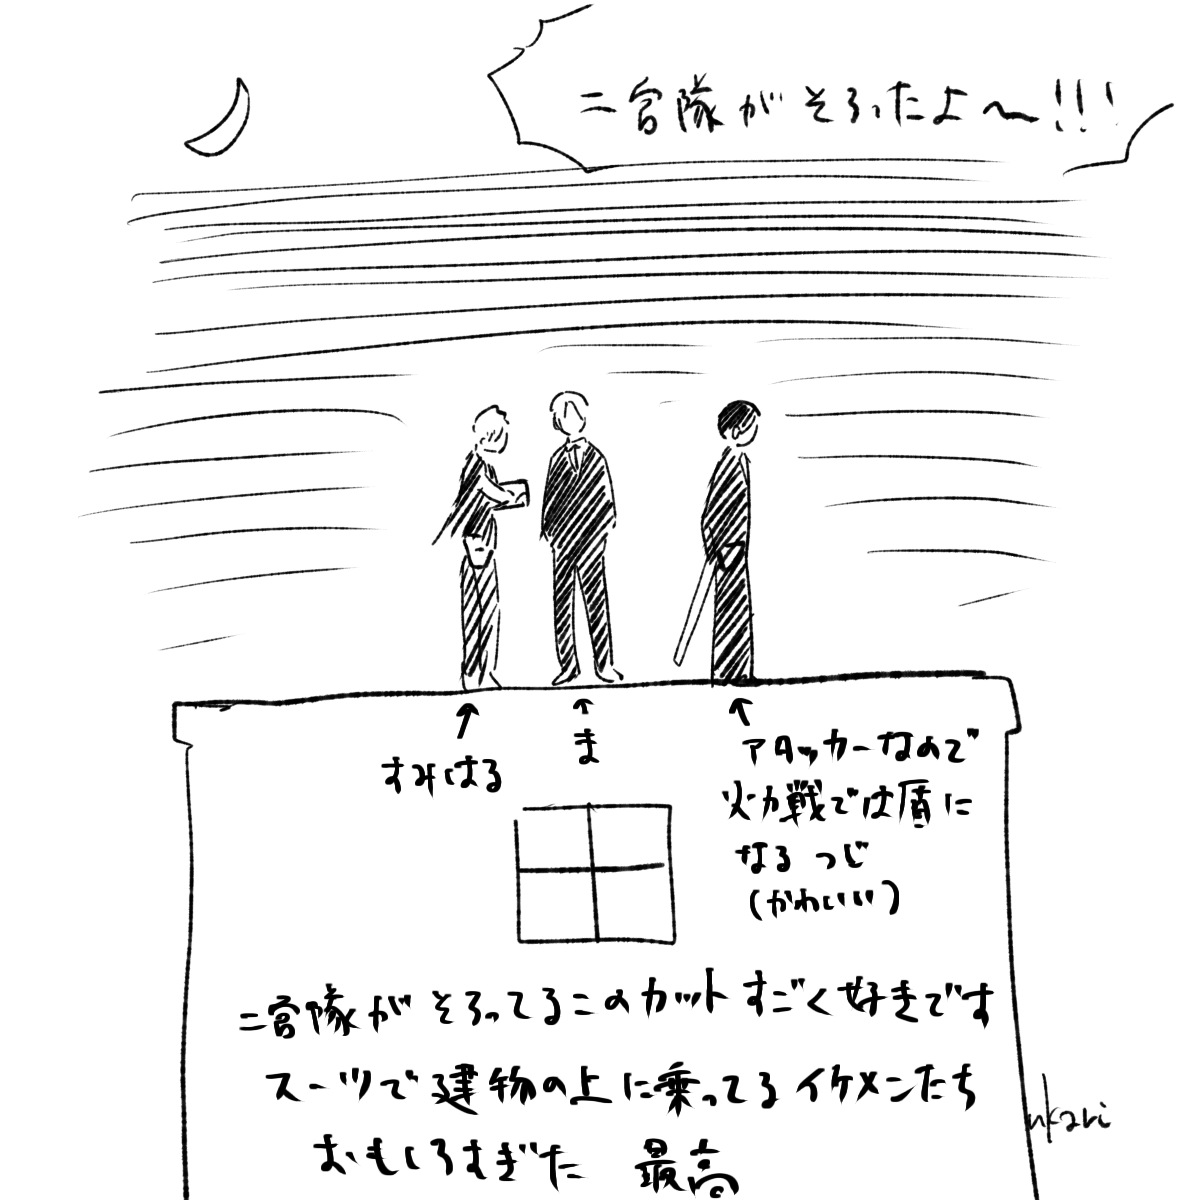 二宮隊がそろったよ〜!!!
すみはる
ま
アタッカーなので
火力戦では盾に
なる つじ
(かわいい)
二宮隊がそろってるこのカットすごく好きです
スーツで建物の上に乗ってるイケメンたち
おもしろすぎた 最高